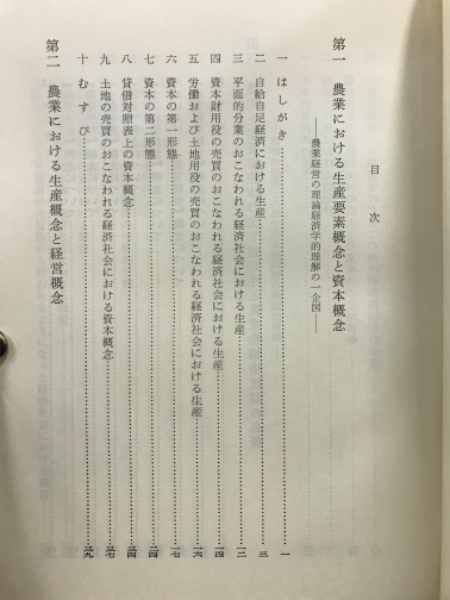 目次
第一 農業における生産要素概念と資本概念
――農業経営の理論経済学的理解の一企図――
一 はしがき……………一
二 自給自足経済における生産……………三
三 平面的分業のおこなわれる経済社会における生産……………一二
四 資本財用役の売買のおこなわれる経済社会における生産……………一四
五 労働および土地用役の売買のおこなわれる経済社会における生産……………一六
六 資本の第一形態……………一七
七 資本の第二形態……………二四
八 貸借対照表上の資本概念……………三四
九 土地の売買のおこなわれる経済社会における資本概念……………三七
十 むすび……………三九
第二 農業における生産概念と経営概念